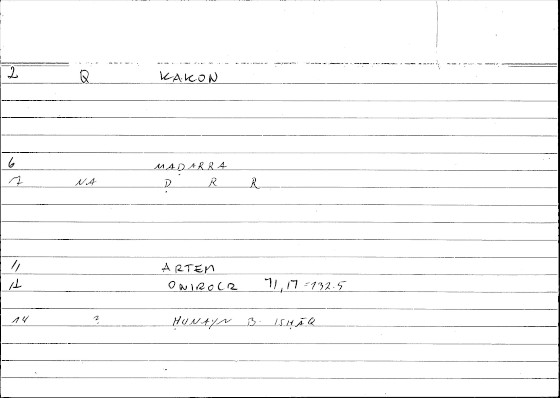 2 Q KAKON
6 MAḌARRA
7 NA Ḍ R R
11 ARTEM
12 ONIROCR 71,17 = 132.5
14 2 ḤUNAYN B. ISḤĀQ